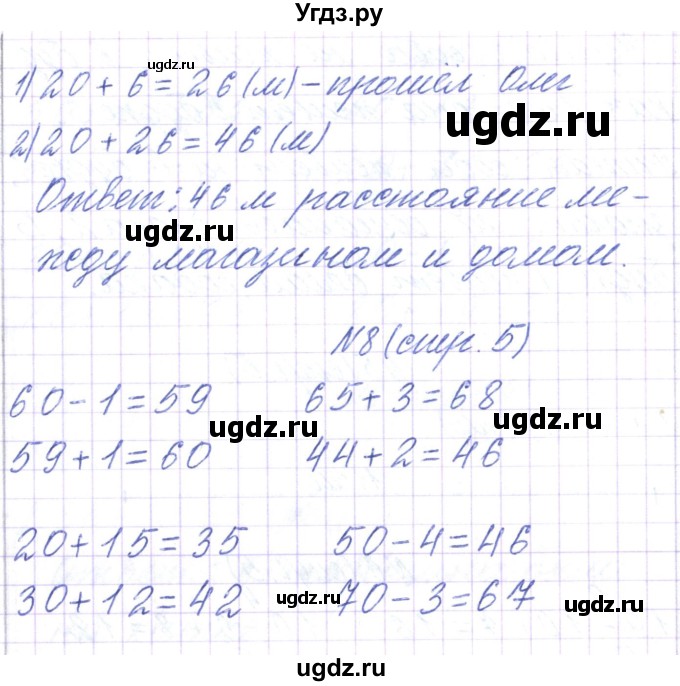 Угдз.ру
ugdz.ru
1) 20 + 6 = 26 (м) – прошёл Олег
ugdz.ru
2) 20 + 26 = 46 (м)
Ответ: 46 м расстояние ме-
ugdz.ru
жду магазином и домом.
ugdz.ru
N8 (стр. 5)
60 – 1 = 59 65 + 3 = 68
ugdz.ru ugdz.ru
59 + 1 = 60 44 + 2 = 46
20 + 15 = 35 50 – 4 = 46
30 + 12 = 42 70 – 3 = 67
ugdz.ru ugdz.ru
ugdz.ru